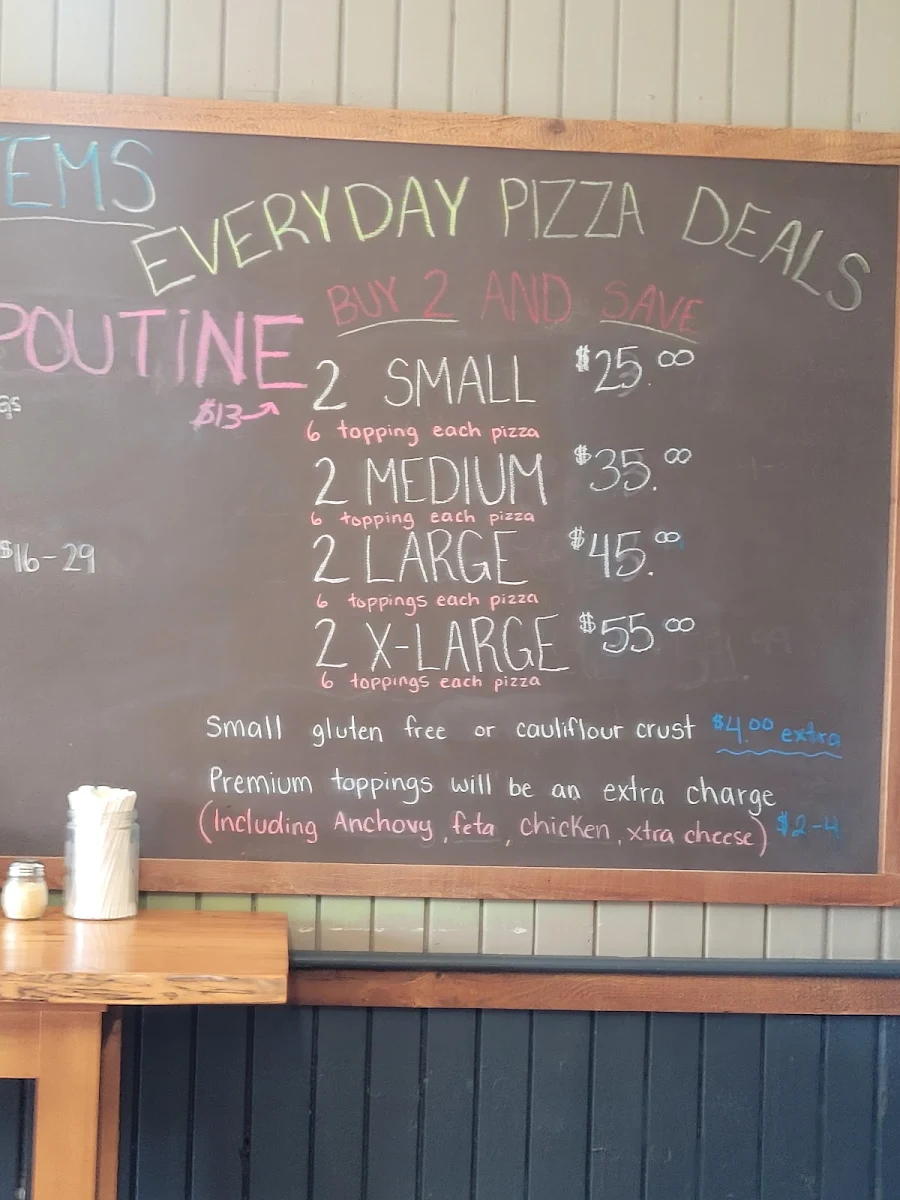 EMS
EVERYDAY PIZZA DEALS
BUY 2 AND SAVE
POUTINE
$13
2 SMALL $25.00
6 topping each pizza
2 MEDIUM $35.00
6 topping each pizza
$16-29
2 LARGE $45.00
6 toppings each pizza
2 X-LARGE $55.00
6 toppings each pizza
Small gluten free or cauliflour crust $4.00 extra
Premium toppings will be an extra charge
(Including Anchovy, feta, chicken, xtra cheese) $2-4